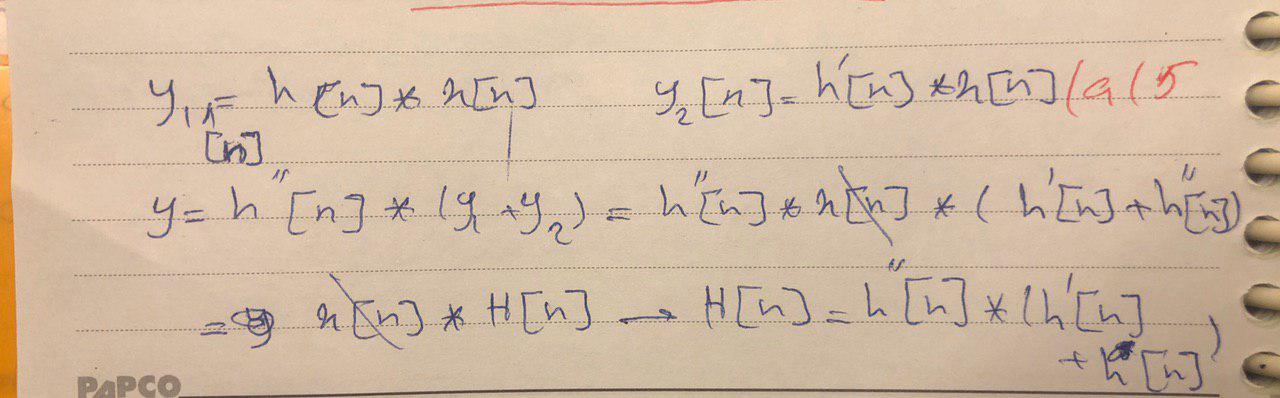 y₁[n] = h[n] * x[n]    y₂[n] = h'[n] * x[n] (a (5
y = h''[n] * (y₁ + y₂) = h''[n] * x[n] * (h'[n] + h''[n])
= x[n] * H[n] → H[n] = h''[n] * (h'[n]
+ h[n])
PAPCO